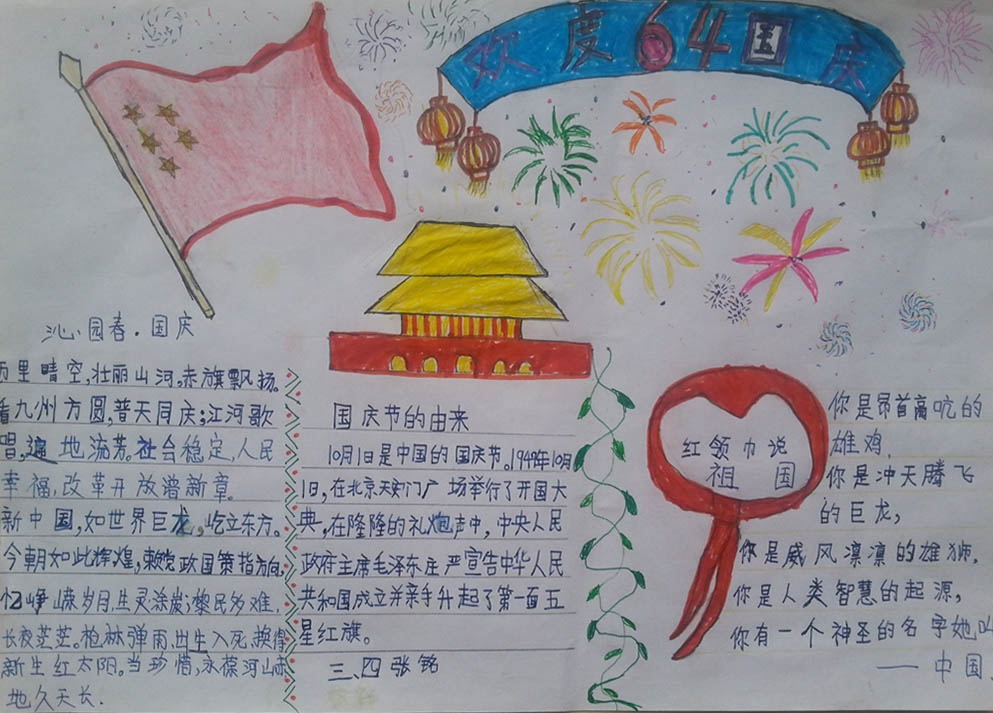 欢度64国庆
沁园春·国庆
万里晴空,壮丽山河。赤旗飘扬。
看九州方圆,普天同庆;江河歌
唱,遍地流芳。社会稳定,人民
幸福,改革开放谱新章。
新中国,如世界巨龙,屹立东方。
今朝如此辉煌,赖党政国策指方向,
忆峥嵘岁月,生灵涂炭;黎民多难,
长夜茫茫。枪林弹雨,出生入死,换得
新生红太阳。当珍惜,永葆河山
地久天长.
国庆节的由来
10月1日是中国的国庆节。1949年10月
1日,在北京天安门广场举行了开国大
典,在隆隆的礼炮声中,中央人民
政府主席毛泽东庄严宣告中华人民
共和国成立并亲手升起了第一面五
星红旗。
三、四 张铭
红领巾说
祖国
你是昂首高吭的
雄鸡,
你是冲天腾飞
的巨龙,
你是威风凛凛的雄狮,
你是人类智慧的起源,
你有一个神圣的名字她叫
——中国.